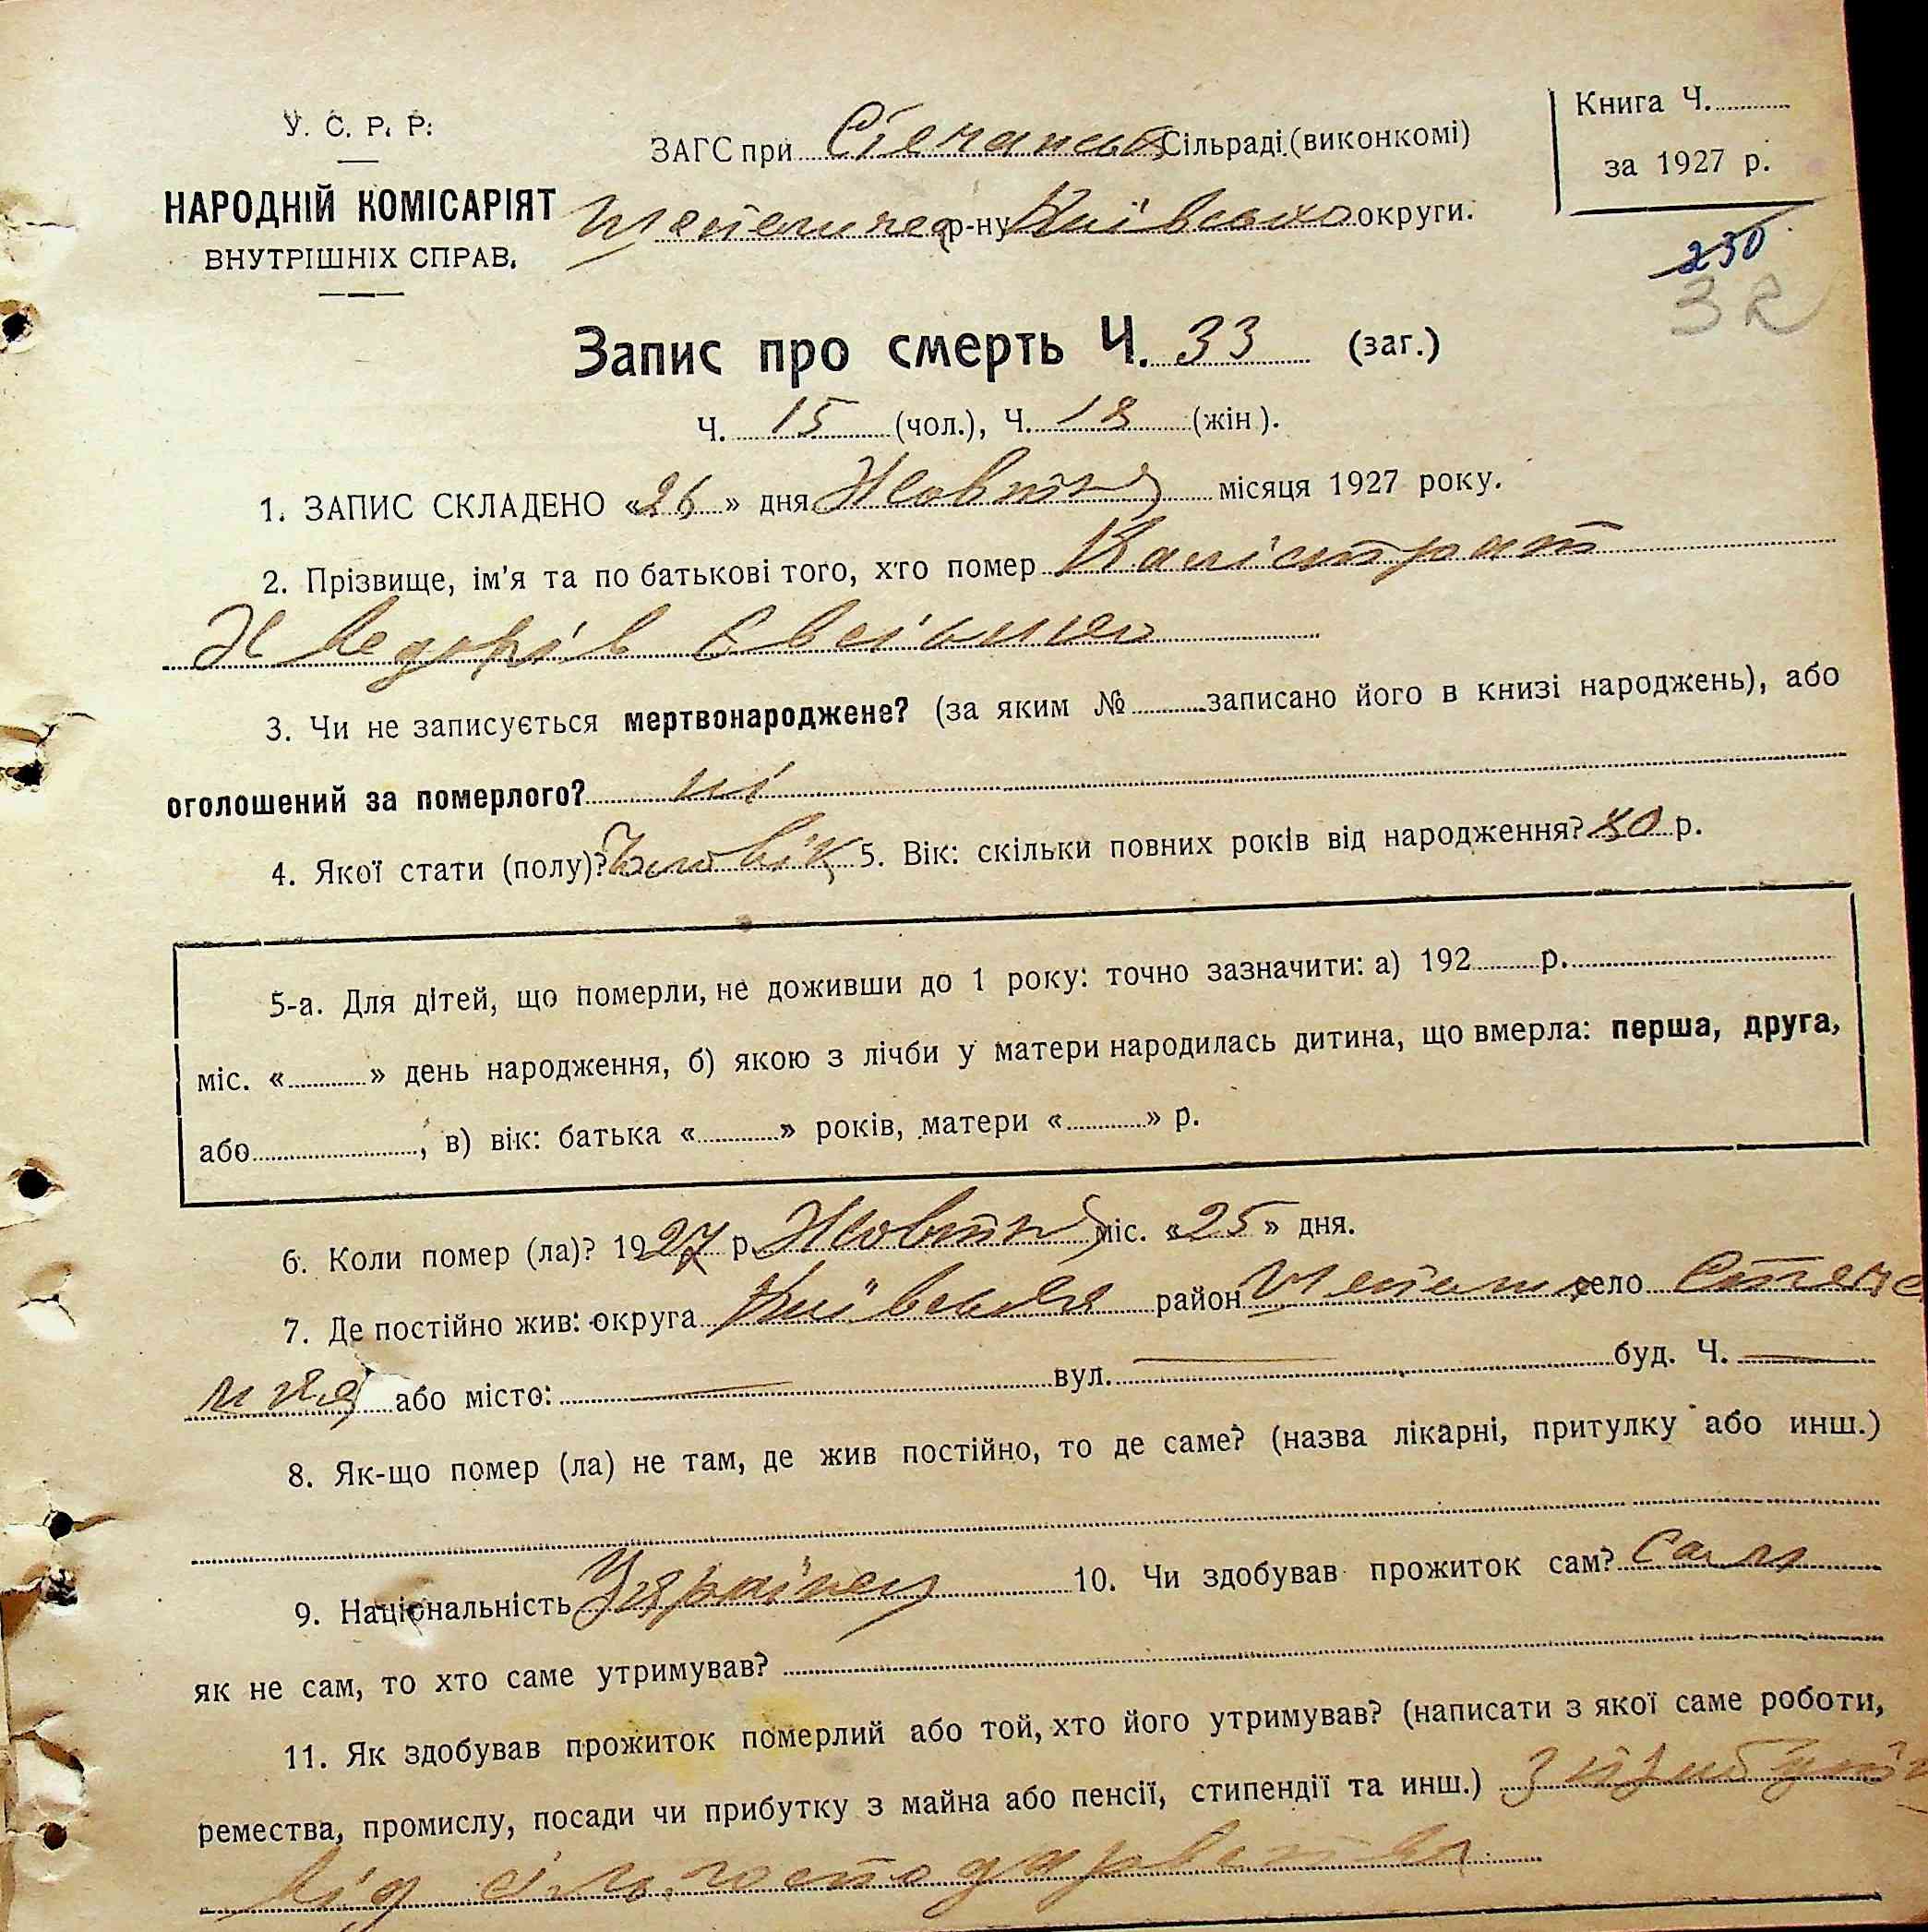 У. С. Р. Р.
НАРОДНІЙ КОМІСАРІЯТ
ВНУТРІШНІХ СПРАВ.
ЗАГС при Сільраді (виконкомі)
р-ну Київсько округи.
Книга Ч.
за 1927 р.
230
32
Запис про смерть Ч. 33 (заг.)
Ч. 15 (чол.), Ч. 18 (жін).
1. ЗАПИС СКЛАДЕНО «26» дня Жовтня місяця 1927 року.
2. Прізвище, ім'я та по батькові того, хто помер Калістрат
3. Чи не записується мертвонароджене? (за яким № записано його в книзі народжень), або
оголошений за померлого? ні
4. Якої стати (полу)? Чоловік 5. Вік: скільки повних років від народження? 80 р.
5-а. Для дітей, що померли, не доживши до 1 року: точно зазначити: а) 192 р.
міс. « » день народження, б) якою з лічби у матери народилась дитина, що вмерла: перша, друга,
або , в) вік: батька « » років, матери « » р.
6. Коли помер (ла)? 1927 р. Жовтня міс. «25» дня.
7. Де постійно жив: округа Київська район село
або місто: — вул. — буд. Ч. —
8. Як-що помер (ла) не там, де жив постійно, то де саме? (назва лікарні, притулку або инш.)
9. Національність Українец 10. Чи здобував прожиток сам? сам
як не сам, то хто саме утримував?
11. Як здобував прожиток померлий або той, хто його утримував? (написати з якої саме роботи,
ремества, промислу, посади чи прибутку з майна або пенсії, стипендії та инш.) З
від сіль. господарства